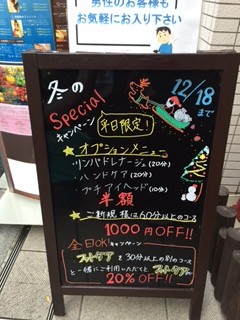 男性のお客様も
お気軽にお入り下さい
冬の
Special
キャンペーン
12/18
まで
平日限定!
★オプションメニュー
・リンパドレナージュ(20分)
・ハンドケア(20分)
・プチアイヘッド(10分)
半額
★ご新規様は60分以上のコース
1000円OFF!!
全日OK!キャンペーン
フットケアを30分以上の別のコース
と一緒にご利用いただくと、フットケアが
20%OFF!!